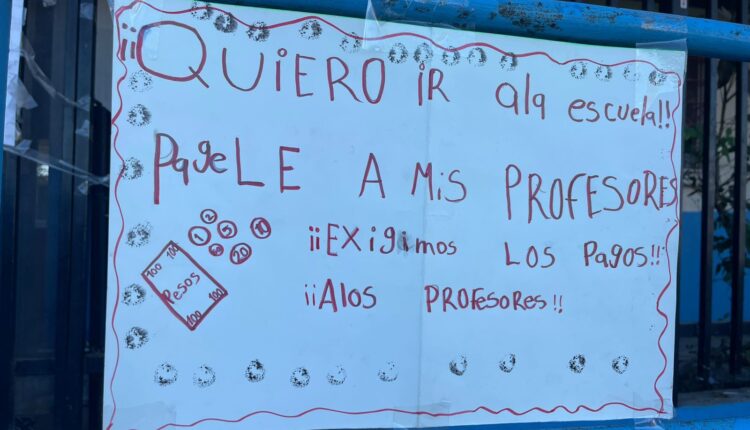 ¡¡QUIERO iR ala escuela!!
PageLE A Mis PROFESORES
¡¡EXigimos LOS Pagos!!
¡¡Alos PROFesoRes!!
2
1 5 10
20
100 100
Pesos
100 100